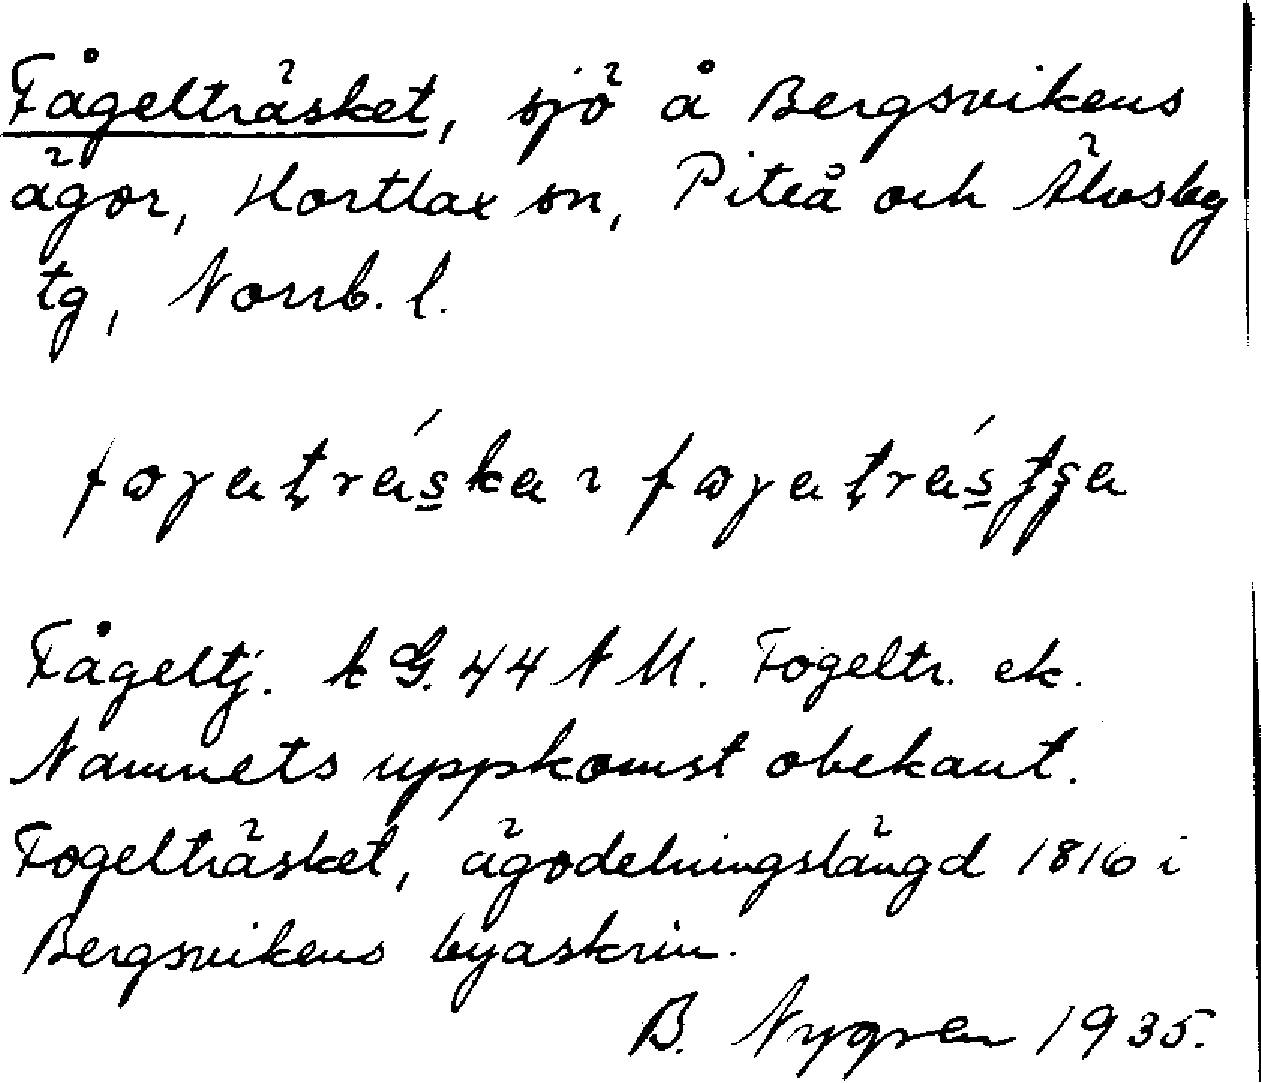 Fågelträsket, sjö å Bergsvikens
ägor, Hortlax sn, Piteå och Älvsby
tg, Norrb. l.
Fågeltj. k G. 44 N M. Fogeltr. ek.
Namnets uppkomst obekant.
Fogelträsket, ägodelningslängd 1816 i
Bergsvikens byaskrin.
B. Nygren 1935.